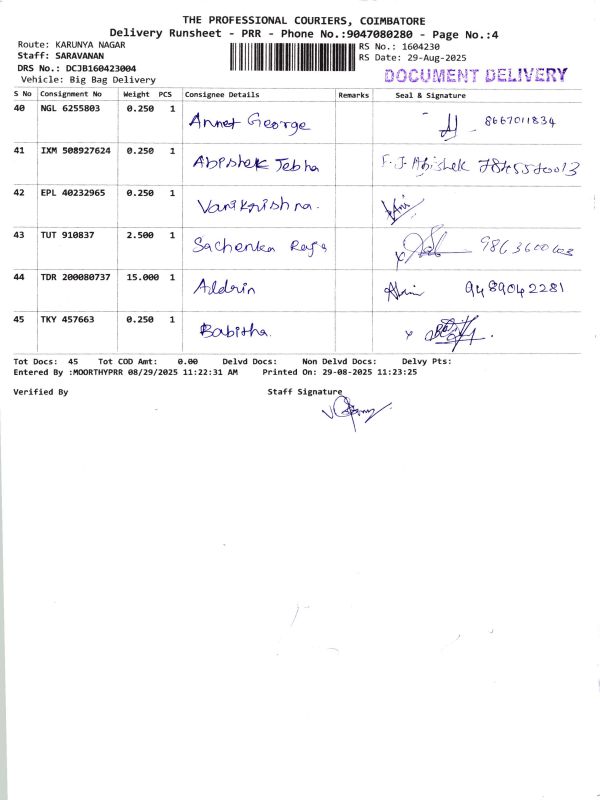 THE PROFESSIONAL COURIERS, COIMBATORE
Delivery Runsheet - PRR - Phone No.:9047080280 - Page No.:4
Route: KARUNYA NAGAR RS No.: 1604230
Staff: SARAVANAN RS Date: 29-Aug-2025
DRS No.: DCJB160423004 DOCUMENT DELIVERY
Vehicle: Big Bag Delivery
S No Consignment No Weight PCS Consignee Details Remarks Seal & Signature
40 NGL 6255803 0.250 1 Annet George 8667011834
41 IXM 508927624 0.250 1 Abishek Jebha Abishek
42 EPL 40232965 0.250 1 Vanikrishna.
43 TUT 910837 2.500 1 Sachenka
44 TDR 200080737 15.000 1 Addrin 9489042281
45 TKY 457663 0.250 1 Babitha.
Tot Docs: 45 Tot COD Amt: 0.00 Delvd Docs: Non Delvd Docs: Delvy Pts:
Entered By :MOORTHYPRR 08/29/2025 11:22:31 AM Printed On: 29-08-2025 11:23:25
Verified By Staff Signature